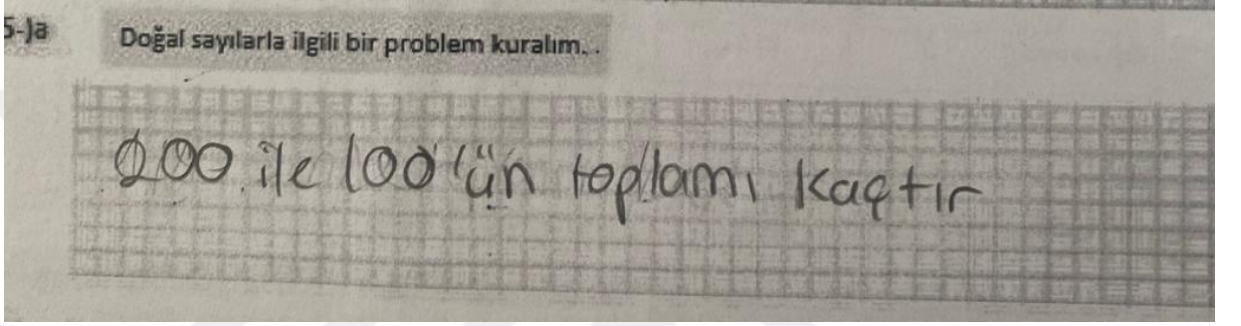 5-)a
Doğal sayılarla ilgili bir problem kuralım. .
200 ile 100'ün toplamı kaçtır